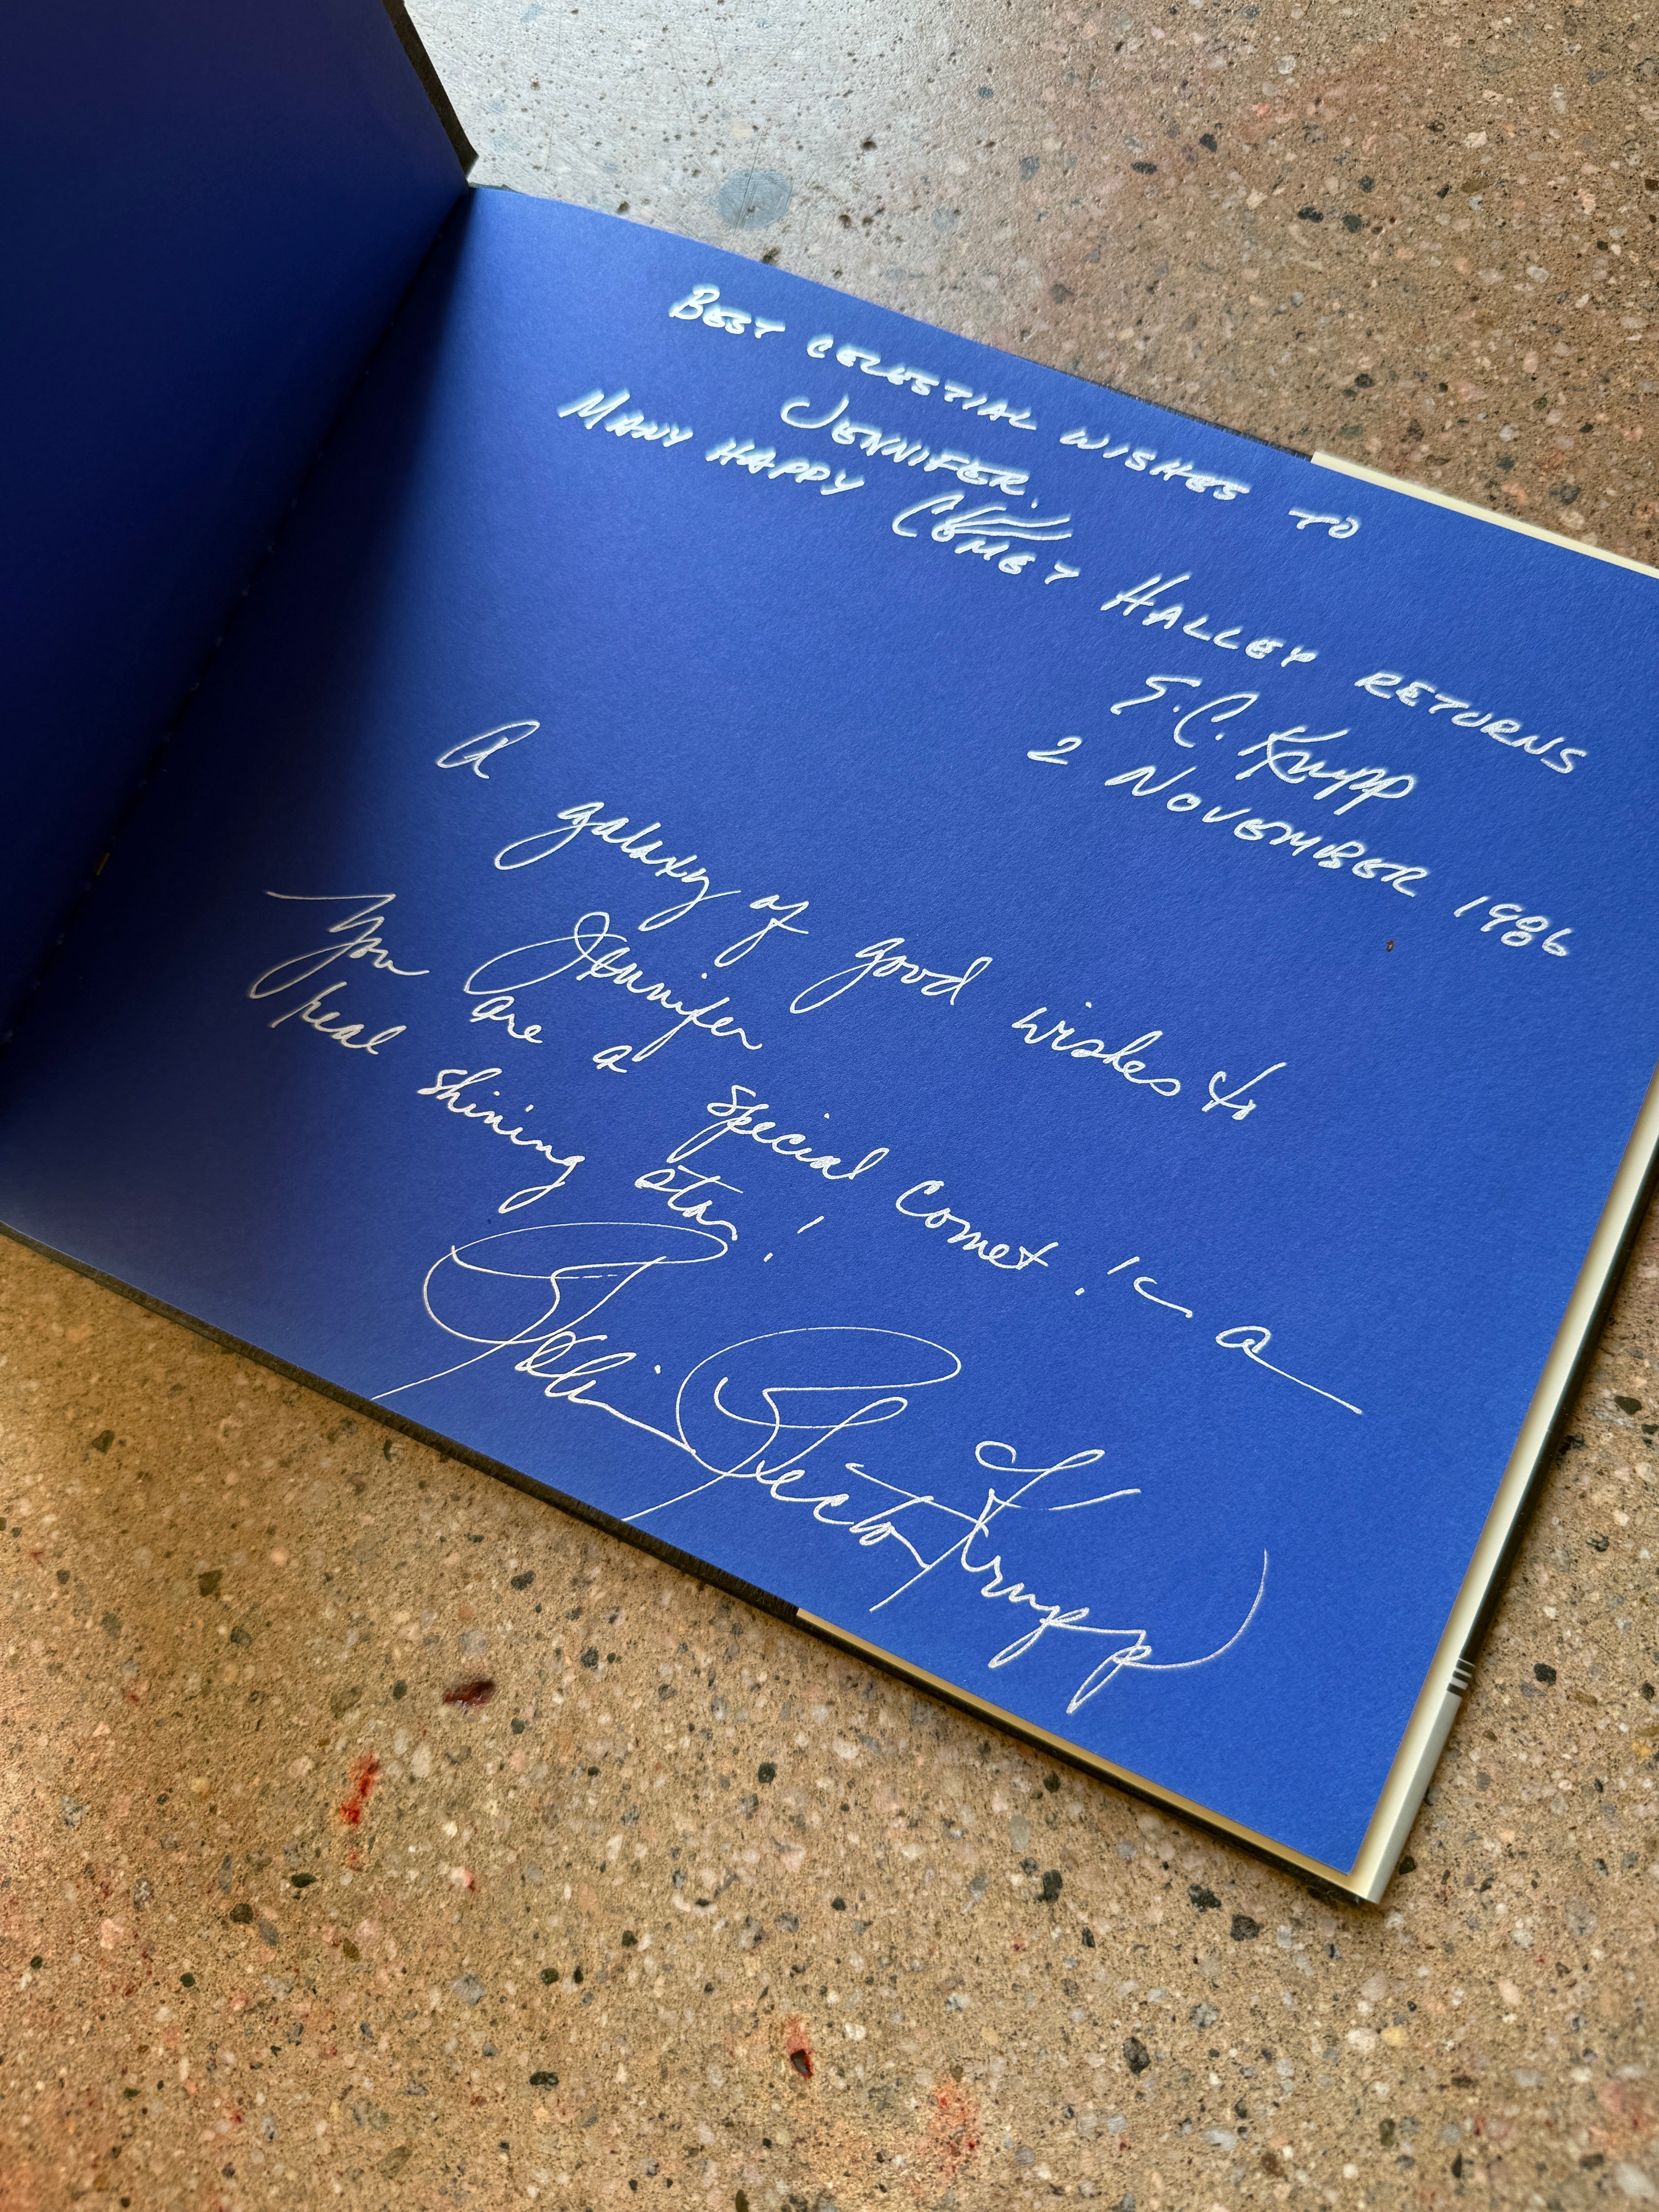 BEST CELESTIAL WISHES TO
JENNIFER.
MANY HAPPY COMET HALLEY RETURNS
E.C. Krupp
2 NOVEMBER 1986
A galaxy of good wishes to
Jennifer
You are a special comet! & a
real shining star!
Robin Rector Krupp